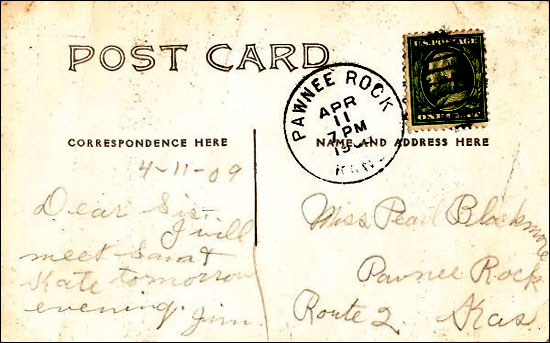 POST CARD
U.S. POSTAGE
ONE CENT
PAWNEE ROCK
APR
11
7 PM
19
KANS
CORRESPONDENCE HERE
NAME AND ADDRESS HERE
4-11-09
Dear Sis,
I will
meet Sara &
Kate tomorrow
evening.
Jim.
Miss Pearl Blackmore
Pawnee Rock
Route 2. Kas